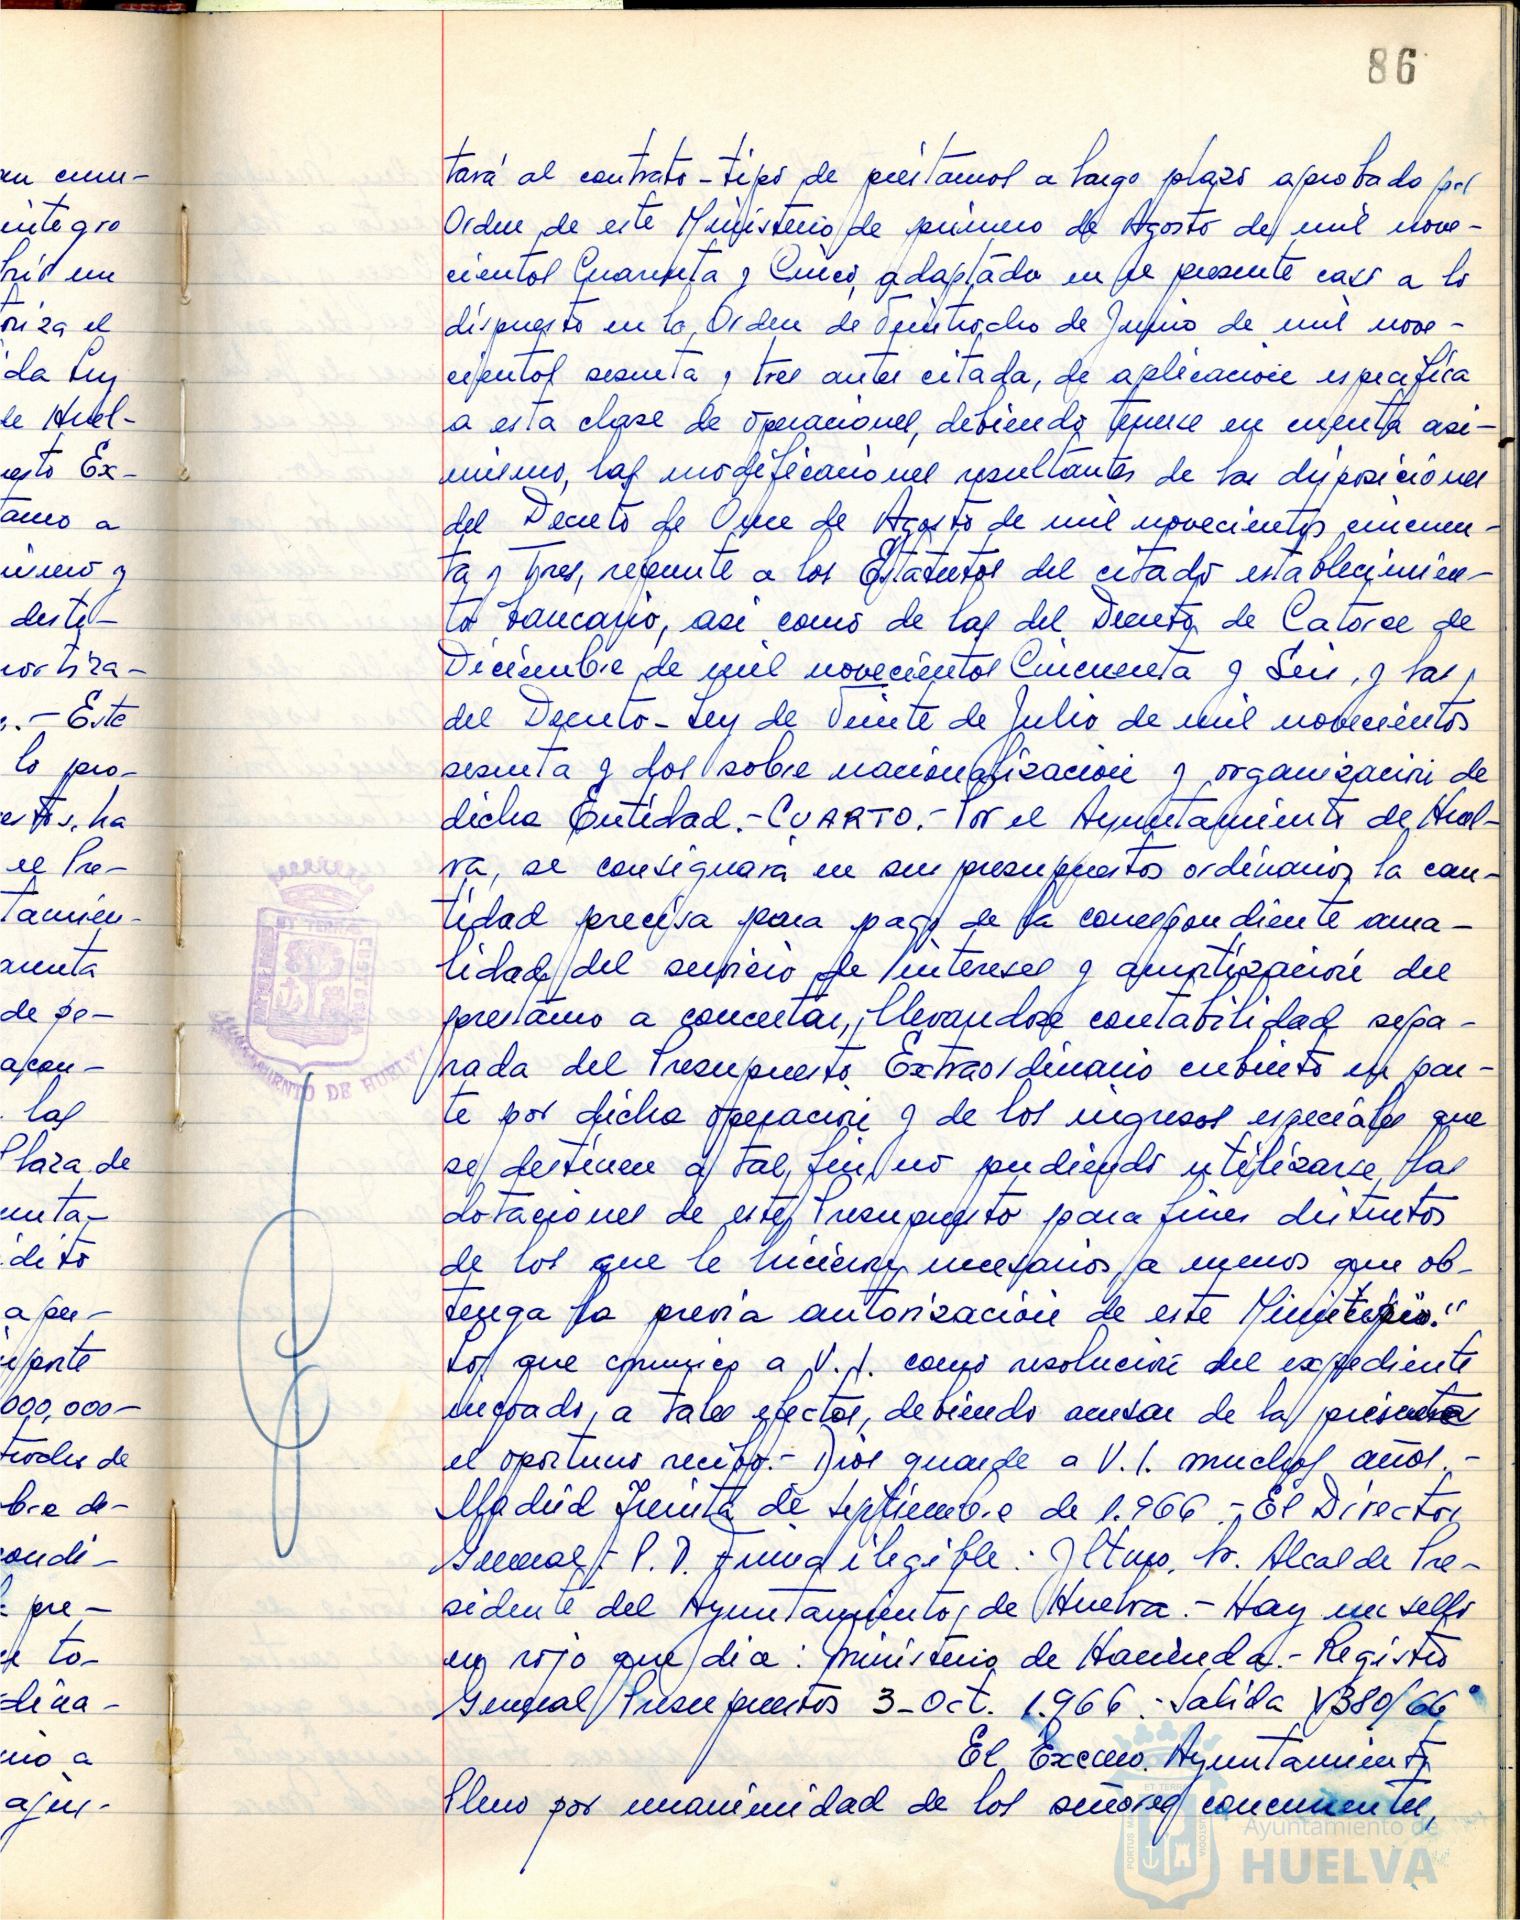 86
tará al contrato-tipo de préstamos a largo plazo aprobado por
Orden de este Ministerio de primero de Agosto de mil nove-
cientos Cuarenta y Cinco, adaptado en el presente caso a lo
dispuesto en la Orden de Veintiocho de Junio de mil nove-
cientos sesenta y tres antes citada, de aplicación especifica
a esta clase de operaciones, debiendo tenerse en cuenta asi-
mismo, las modificaciones resultantes de las disposiciones
del Decreto de Once de Agosto de mil novecientos cincuen-
ta y Tres, referente a los Estatutos del citado establecimien-
to bancario, asi como de las del Decreto de Catorce de
Diciembre de mil novecientos Cincuenta y Seis, y las
del Decreto-Ley de Veinte de Julio de mil novecientos
sesenta y dos sobre nacionalización y organización de
dicha Entidad.-CUARTO.- Por el Ayuntamiento de Huel-
va, se consignará en sus presupuestos ordinarios la can-
tidad precisa para pago de la correspondiente anua-
lidad del servicio de intereses y amortización del
prestamo a concertar, llevandose contabilidad sepa-
rada del Presupuesto Extraordinario cubierto en par-
te por dicha operación y de los ingresos especiales que
se destinen a tal fin, no pudiendo utilizarse las
dotaciones de este Presupuesto para fines distintos
de los que le hicieron necesarios, a menos que ob-
tenga la previa autorización de este Ministerio."
Lo que comunico a V.I. como resolución del expediente
incoado, a tales efectos, debiendo acusar de la presente
el oportuno recibo.- Dios guarde a V.I. muchos años.-
Madrid Treinta de septiembre de 1.966.- El Director
General.- P.D. Firma ilegible. Iltmo. Sr. Alcalde Pre-
sidente del Ayuntamiento de Huelva.- Hay un sello
en rojo que dice: Ministerio de Hacienda.- Registro
General Presupuestos 3-Oct. 1.966. Salida
El Excmo. Ayuntamiento
Pleno por unanimidad de los señores concurrentes,
integro
oriza el
da Ley
de Huel-
esto Ex-
tamo a
desti-
mortiza-
.- Este
lo pro-
ha
el Pre-
tamien-
de pe-
las
Plaza de
a per-
000,000-
condi-
pre-
to-
dina-
ajus-
AYUNTAMIENTO DE HUELVA
Ayuntamiento de
HUELVA